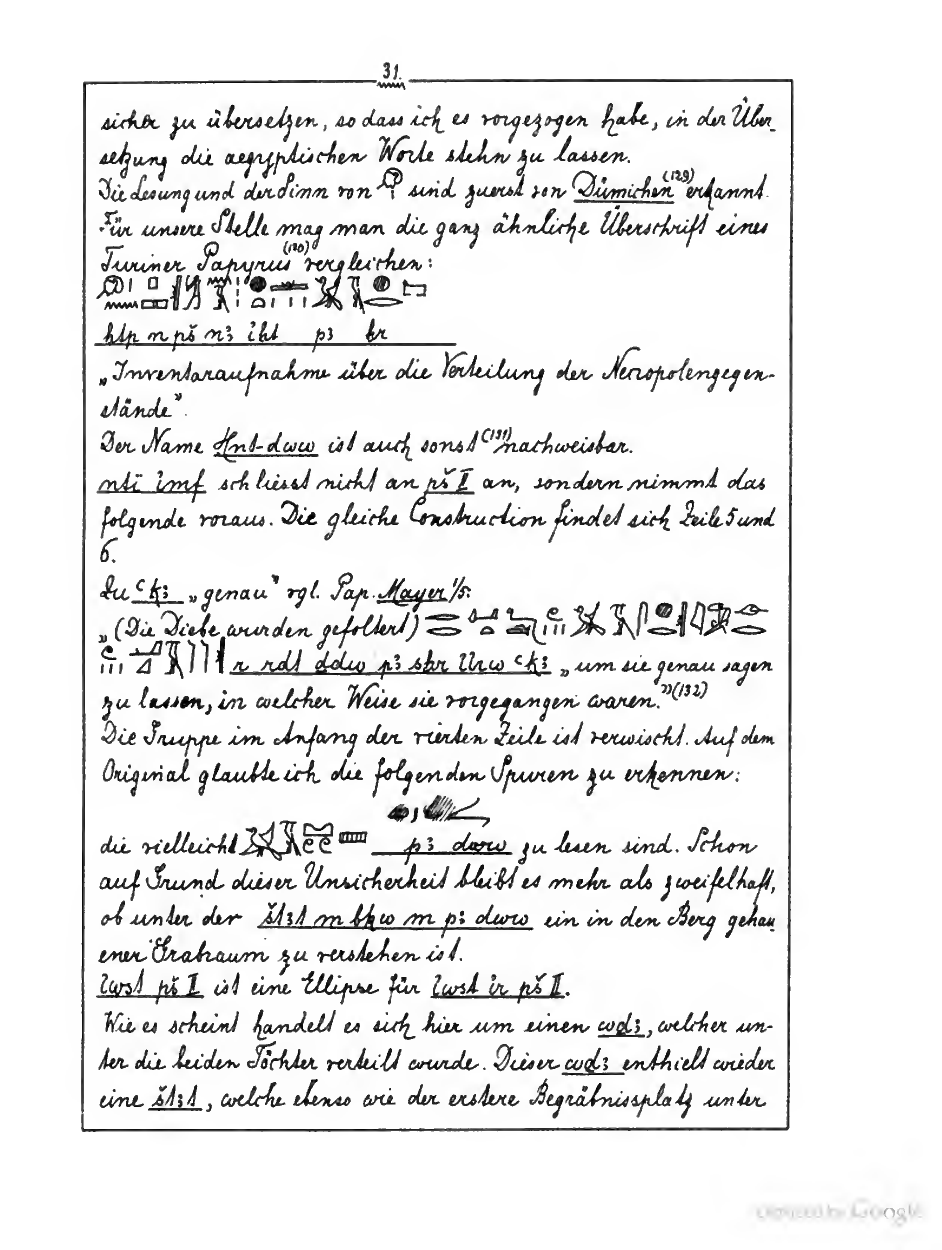 31.
sicher zu übersetzen, so dass ich es vorgezogen habe, in der Über-
setzung die aegyptischen Worte stehn zu lassen.
Die Lesung und der Sinn von sind zuerst von Dümichen (129) erkannt.
Für unsere Stelle mag man die ganz ähnliche Überschrift eines
Turiner Papyrus (130) vergleichen:
ḥtp n pš nꜣ iḫt pꜣ ḫr
„Inventaraufnahme über die Verteilung der Necropolengegen-
stände".
Der Name Ḫnt-dww ist auch sonst (131) nachweisbar.
nti imf schliesst nicht an pš II an, sondern nimmt das
folgende voraus. Die gleiche Construction findet sich Zeile 5 und
6.
Zu ꜥḳꜣ „genau" vgl. Pap. Mayer 1/5:
„(Die Diebe wurden gefoltert)
r rdt ddw pꜣ sḫr irw ꜥḳꜣ „um sie genau sagen
zu lassen, in welcher Weise sie vorgegangen waren." (132)
Die Gruppe im Anfang der vierten Zeile ist verwischt. Auf dem
Original glaubte ich die folgenden Spuren zu erkennen:
die vielleicht pꜣ dww zu lesen sind. Schon
auf Grund dieser Unsicherheit bleibt es mehr als zweifelhaft,
ob unter der štꜣt m bḳw m pꜣ dww ein in den Berg gehau
ener Grabraum zu verstehen ist.
iwst pš II ist eine Ellipse für iwst ir pš II.
Wie es scheint handelt es sich hier um einen wdꜣ, welcher un-
ter die beiden Töchter verteilt wurde. Dieser wdꜣ enthielt wieder
eine štꜣt, welche ebenso wie der erstere Begräbnissplatz unter
Digitized by Google